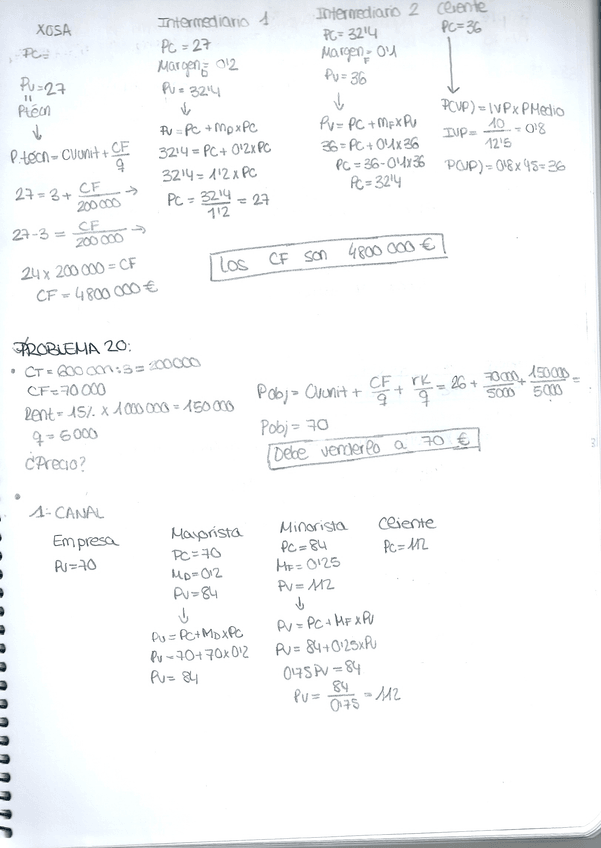 XOSA
Pc=
Pv=27
"
Ptécn
↓
P.técn=CVunit+CF/q
27=3+CF/200000 →
27-3=CF/200000 →
24x200000=CF
CF=4800000€
Intermediario 1
Pc=27
MargenD=0'2
Pv=32'4
↓
Pv=Pc+mDxPc
32'4=Pc+0'2xPc
32'4=1'2xPc
Pc=32'4/1'2=27
Intermediario 2
Pc=32'4
MargenF=0'1
Pv=36
↓
Pv=Pc+mFxPv
36=Pc+0'1x36
Pc=36-0'1x36
Pc=32'4
Cliente
Pc=36
↓
P(VP)=IVPxPMedio
IVP=10/12'5=0'8
P(VP)=0'8x45=36
Los CF son 4800000€
PROBLEMA 20:
• CT=600000:3=200000
CF=70000
Rent=15% x1000000=150000
q=5000
¿Precio?
Pobj=CVunit+CF/q+rK/q=26+70000/5000+150000/5000=
Pobj=70
Debe venderlo a 70 €
•
1-CANAL
Empresa
Pv=70
Mayorista
Pc=70
MD=0'2
Pv=84
↓
Pv=Pc+MDxPc
Pv=70+70x0'2
Pv=84
Minorista
Pc=84
MF=0'25
Pv=112
↓
Pv=Pc+MFxPv
Pv=84+0'25xPv
0'75Pv=84
Pv=84/0'75=112
Cliente
Pc=112